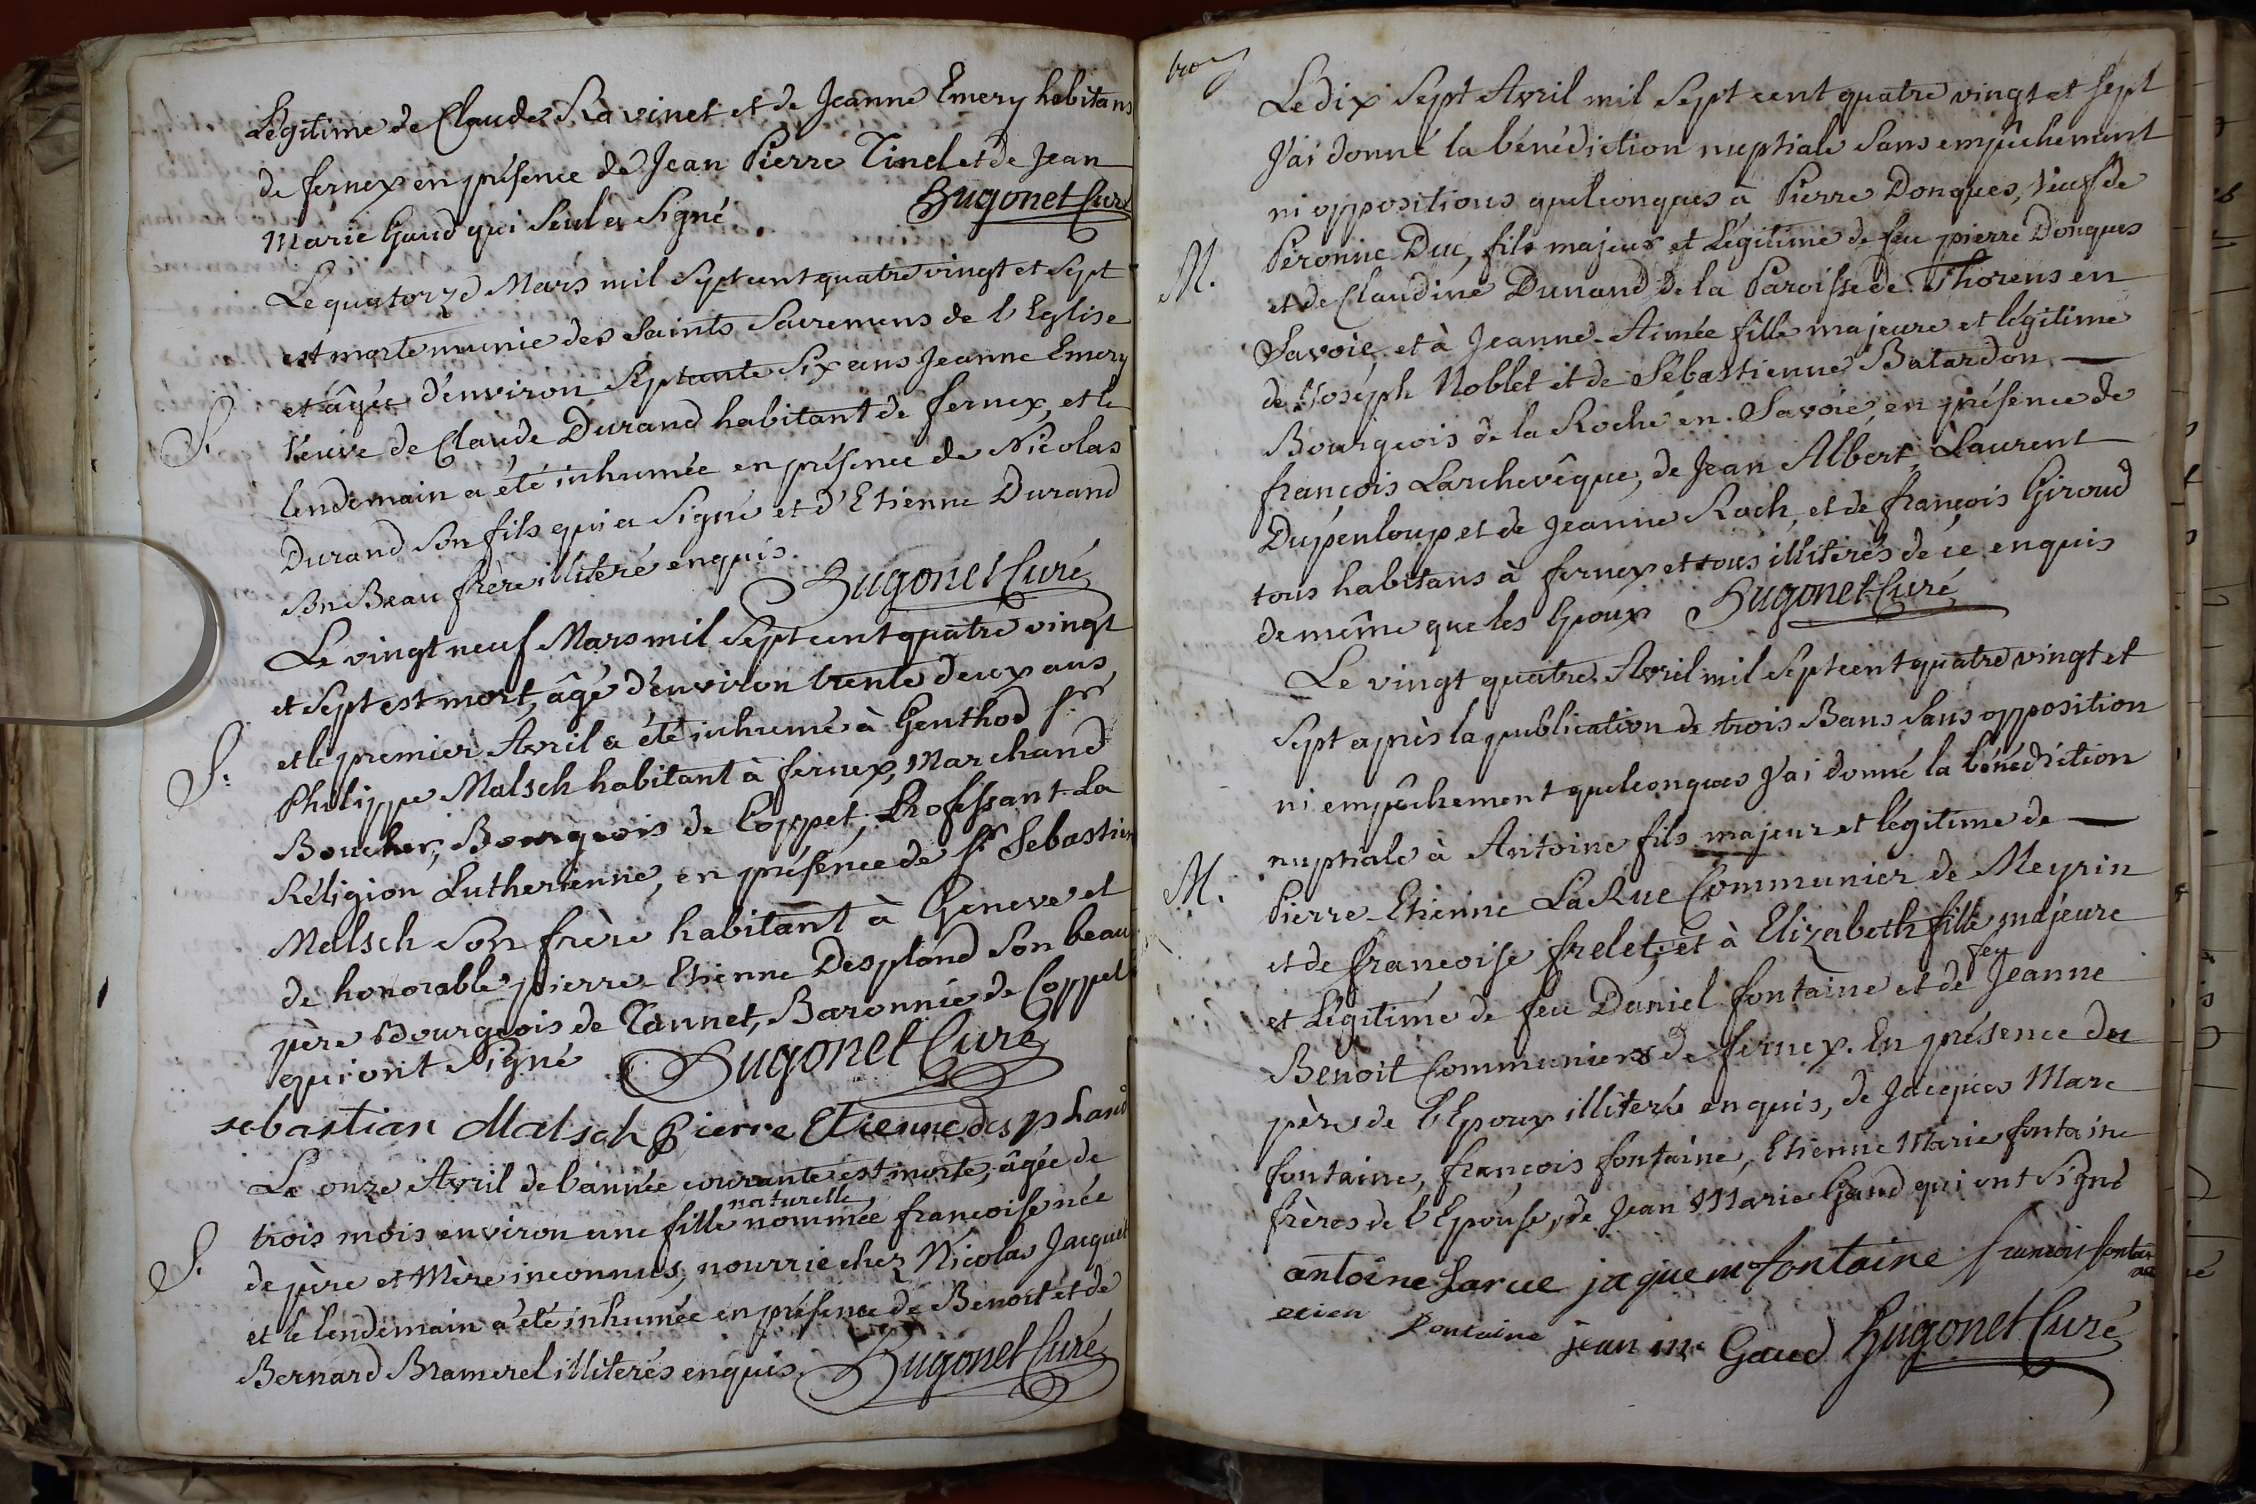 Légitime de Claude Ravinet et de Jeanne Emery habitans
de fernex en présence de Jean Pierre Tinel et de Jean
Marie Gaud qui seul a signé. Hugonet Curé
Le quatorze Mars mil sept cent quatre vingt et sept
est morte munie des saints sacremens de l'Eglise
et âgée d'environ septante six ans Jeanne Emery
S. Veuve de Claude Durand habitant de fernex, et le
lendemain a été inhumée en présence de Nicolas
Durand son fils qui a signé et d'Etienne Durand
son Beau frère illiteré enquis.
Hugonet Curé
Le vingt neuf Mars mil sept cent quatre vingt
et sept est mort, âgé d'environ trente deux ans
et le premier Avril a été inhumé à Genthod Sr
S. Philippe Malsch habitant à fernex, Marchand
Boucher, Bourgeois de Coppet, Professant La
Réligion Lutherienne, en présence de Sr Sebastien
Malsch son frère habitant à Geneve et
de honorable pierre Etienne Despland son beau
père Bourgeois de Tannet, Baronnie de Coppet
qui ont signé Hugonet Curé
sebastian Malsch Pierre Etienne des pland
Le onze Avril de l'année courante est morte, âgée de
naturelle
trois mois environ une fille nommée francoise née
S. de père et Mère inconnus, nourrie chez Nicolas Jacquet
et le lendemain a été inhumée en présence de Benoit et de
Bernard Bramerel illiterés enquis. Hugonet Curé
Le dix sept Avril mil sept cent quatre vingt et sept
J'ai donné la bénédiction nuptiale sans empêchement
ni oppositions quelconques à Pierre Donques, Veuf de
M. Péronne Duc, fils majeur et Légitime de feu pierre Donques
et de Claudine Dunand de la Paroisse de Thorens en
Savoie, et à Jeanne-Aimée fille majeure et légitime
de Joseph Noblet et de Sébastienne Batardon
Bourgeois de la Roche en Savoie, en présence de
françois Larchevêque, de Jean Albert, Laurent
Dupenloup et de Jeanne Roch, et de françois Giroud
tous habitans à fernex et tous illiterés de ce enquis
de même que les Epoux Hugonet Curé
Le vingt quatre Avril mil sept cent quatre vingt et
sept après la publication de trois Bans sans opposition
ni empêchement quelconques J'ai donné la bénédiction
nuptiale à Antoine fils majeur et légitime de
M. Pierre-Etienne LaRue Communier de Meyrin
et de francoise frelet, et à Elizabeth fille majeure
feu
et Légitime de feu Daniel fontaine et de Jeanne
Benoit Communiers de fernex. En présence du
père de l'Epoux illiteré enquis, de Jacques Marc
fontaine, françois fontaine, Etienne Marie fontaine
frères de l'Epouse, de Jean Marie Gaud qui ont signé
antoine Larue jaque m fontaine francois fontai
ne
etien Fontaine jean m. Gaud Hugonet Curé